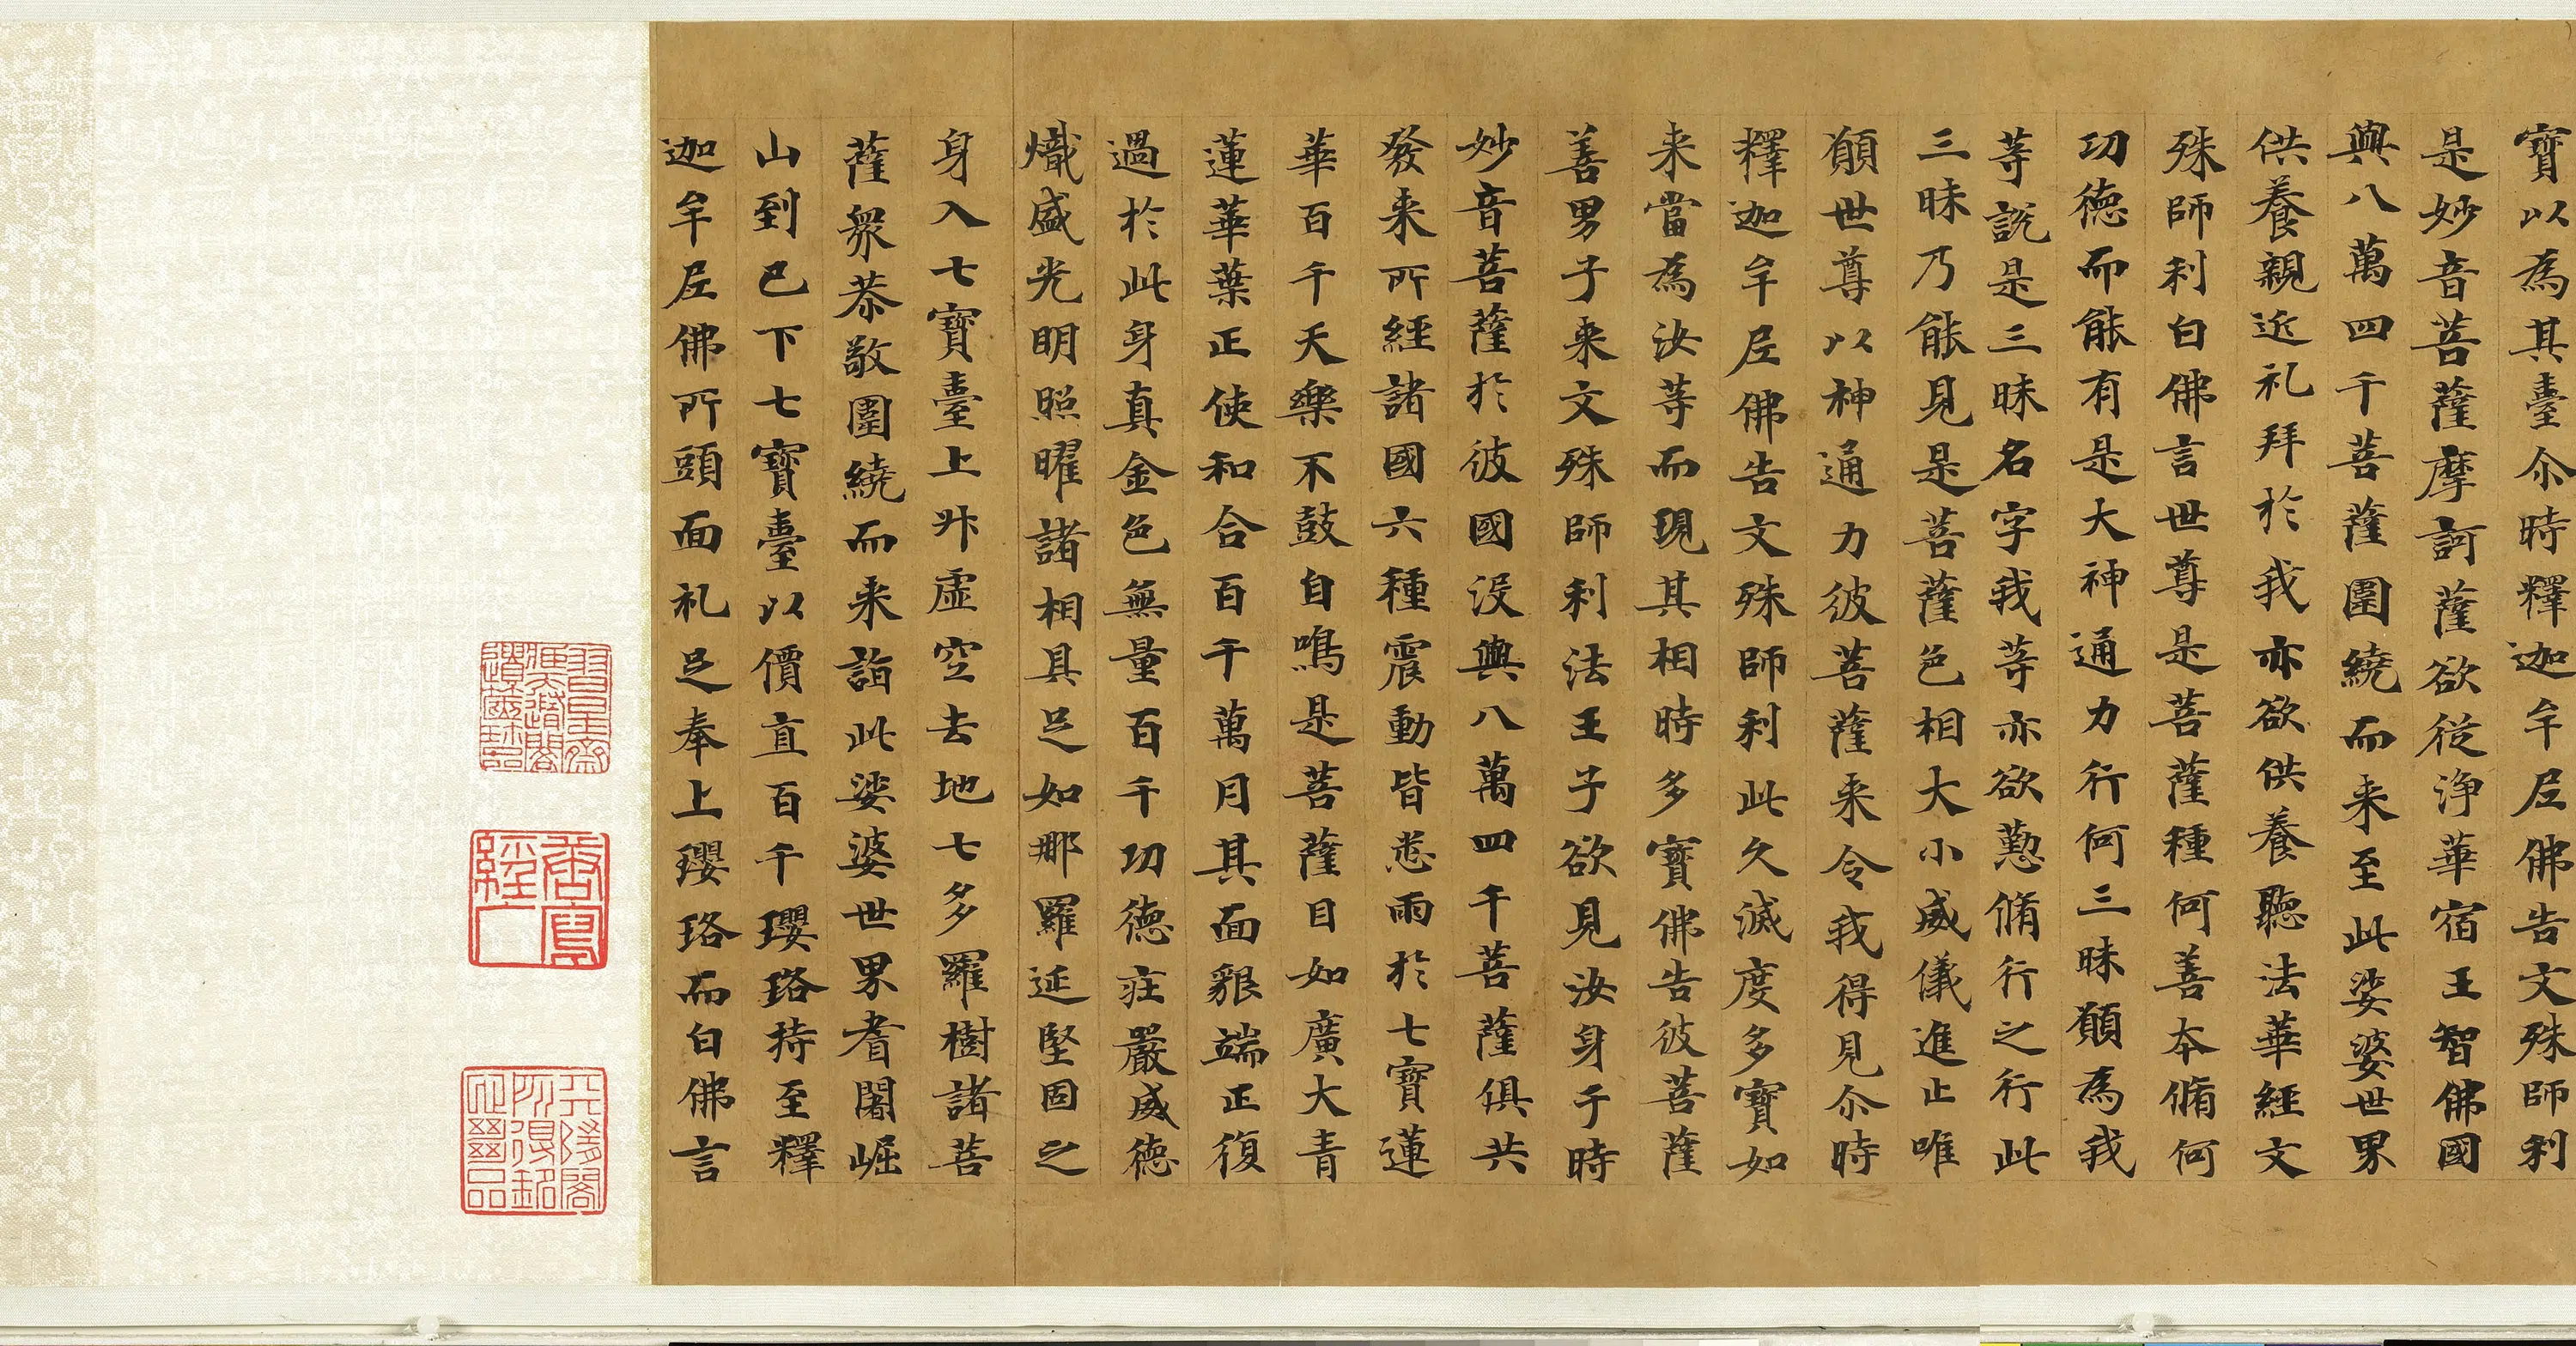 寶以為其臺尒時釋迦牟尼佛告文殊師利
是妙音菩薩摩訶薩欲從淨華宿王智佛國
與八萬四千菩薩圍繞而来至此娑婆世界
供養親近礼拜於我亦欲供養聽法華經文
殊師利白佛言世尊是菩薩種何善本脩何
功德而能有是大神通力行何三昧願為我
等說是三昧名字我等亦欲懃脩行之行此
三昧乃能見是菩薩色相大小威儀進止唯
願世尊以神通力彼菩薩来令我得見尒時
釋迦牟尼佛告文殊師利此久滅度多寶如
来當為汝等而現其相時多寶佛告彼菩薩
善男子来文殊師利法王子欲見汝身于時
妙音菩薩於彼國沒與八萬四千菩薩俱共
發来所經諸國六種震動皆悉雨於七寶蓮
華百千天樂不鼓自鳴是菩薩目如廣大青
蓮華葉正使和合百千萬月其面貌端正復
過於此身真金色無量百千功德莊嚴威德
熾盛光明照曜諸相具足如那羅延堅固之
身入七寶臺上昇虛空去地七多羅樹諸菩
薩眾恭敬圍繞而来詣此娑婆世界耆闍崛
山到已下七寶臺以價直百千瓔珞持至釋
迦牟尼佛所頭面礼足奉上瓔珞而白佛言
唐寫
經人